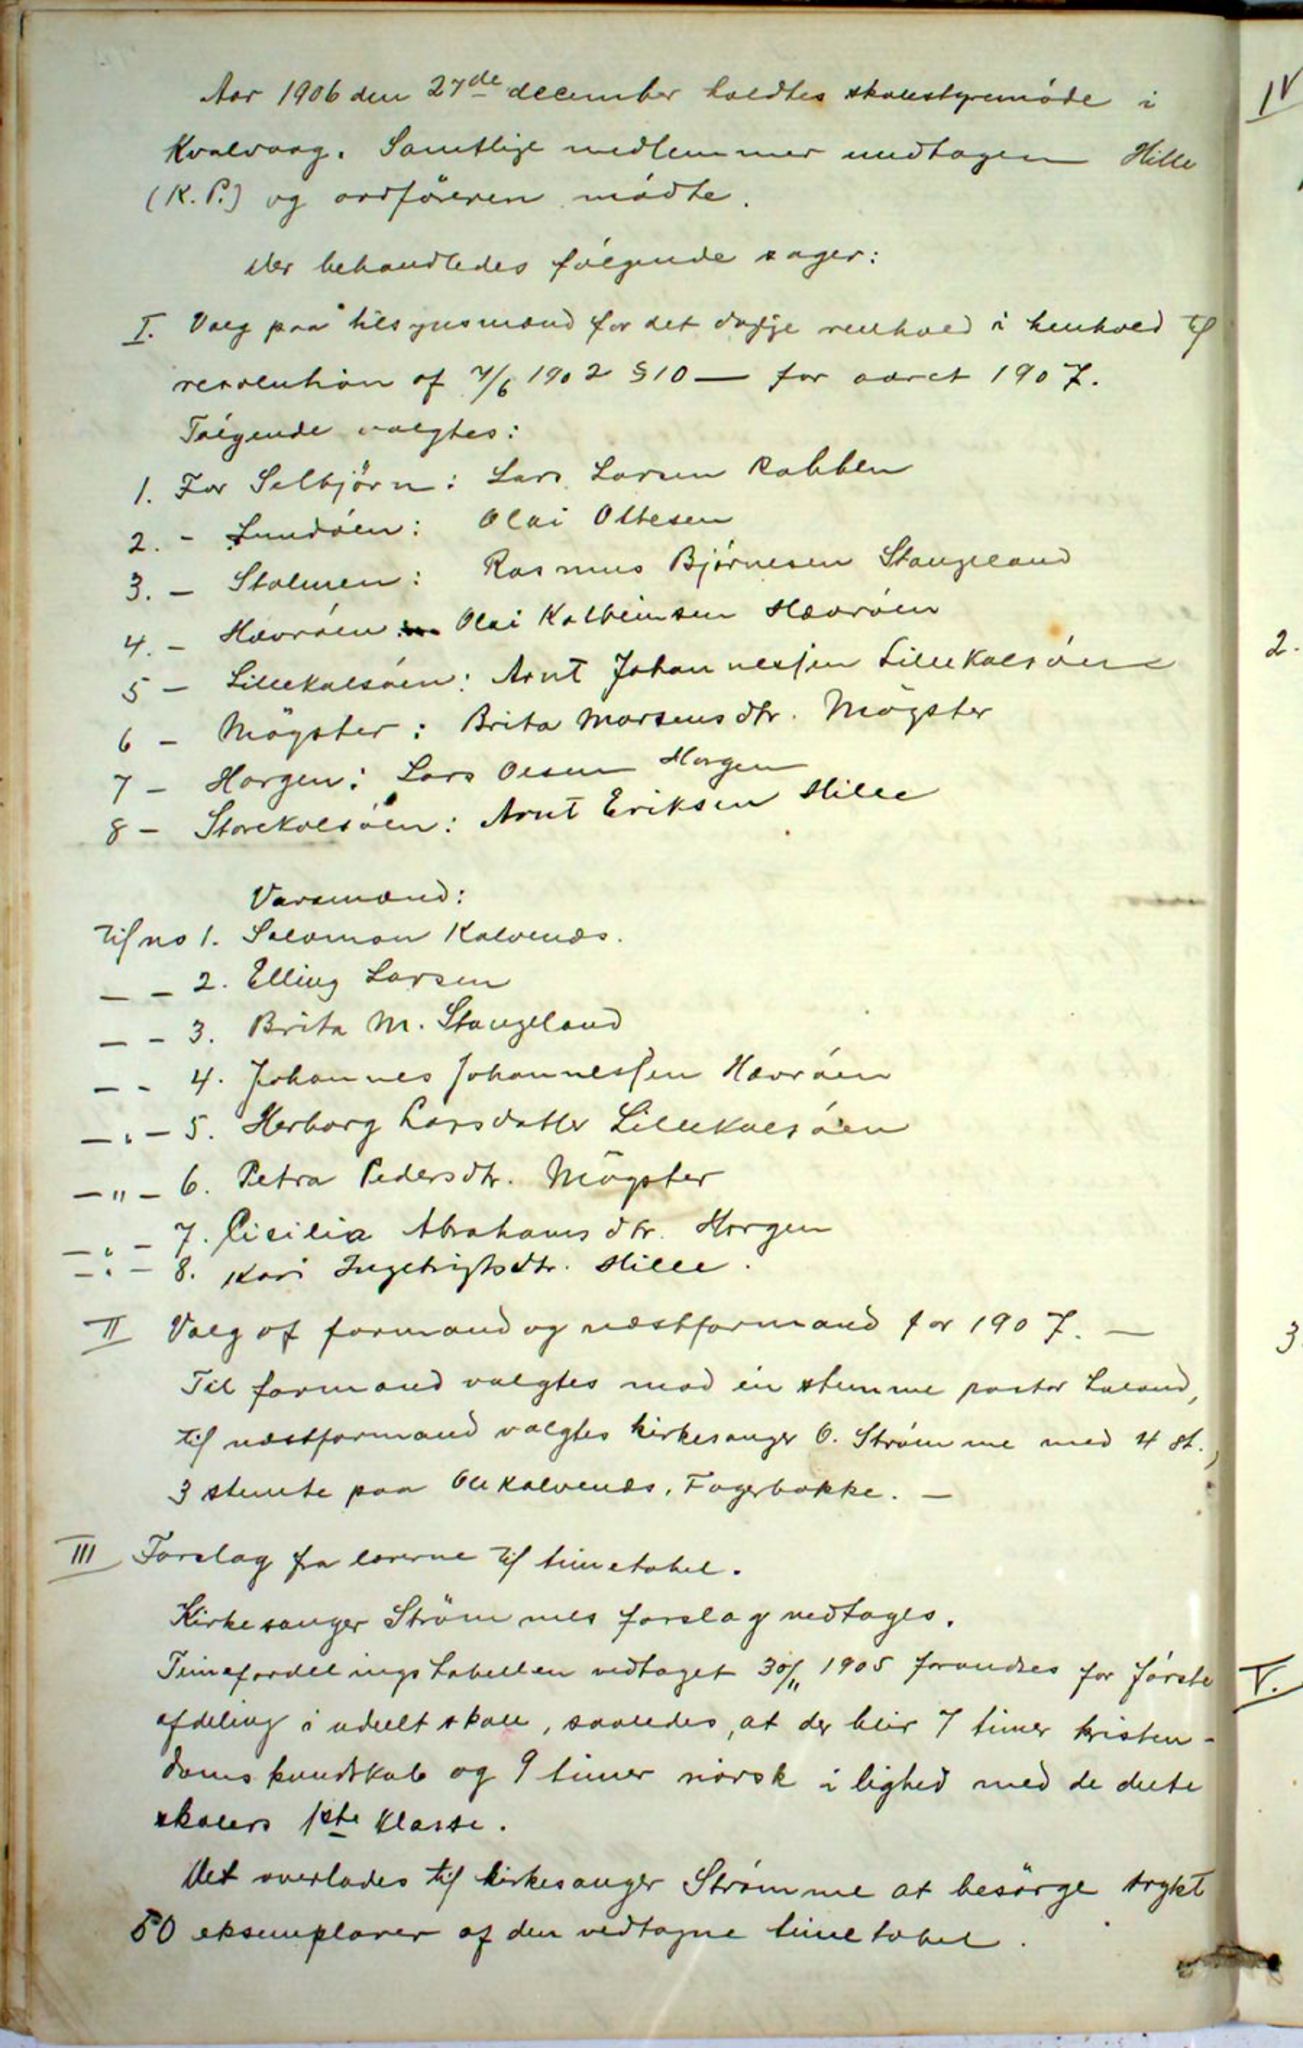 Aar 1906 den 27de december holdtes skolestyremöde i
Kvalvaag. Samtlige medlemmer undtagen Hille
(K. P.) og ordföreren mödte.
Der behandledes fölgende sager:
I. Valg paa tilsynsmænd for det daglige renhold i henhold til
resolution af 7/6 1902 § 10 — for aaret 1907.
Fölgende valgtes:
1. For Selbjörn: Lars Larsen Rabben
2. - Sundöen: Olai Ottesen
3. — Stolmen: Rasmus Björnesen Stangeland
4. — Hævröen Olai Kolbeinsen Hævröen
5 — Lillekalsöen: Arnt Johannessen Lillekalsöen
6 — Mögster: Brita Monsensdtr. Mögster
7 — Horgen: Lars Olsen Horgen
8 — Storekalsöen: Arnt Eriksen Hille
Varamænd:
Til no 1. Salomon Kalvenæs.
— — 2. Elling Larsen
— — 3. Brita M. Stangeland
— - 4. Johannes Johannessen Hævröen
— " — 5. Herborg Larsdatter Lillekalsöen
— " — 6. Petra Pedersdtr. Mögster
— " — 7. Cicilia Abrahamsdtr. Horgen
— " — 8. Kari Ingebrigtsdtr. Hille.
II Valg af formand og næstformand for 1907. —
Til formand valgtes mod en stemme pastor Laland,
til næstformand valgtes kirkesanger O. Strömme med 4 st.,
3 stemte paa Ole Kalvenæs, Fagerbakke. —
III Forslag fra lærerne til timetabel.
Kirkesanger Strömmes forslag vedtages.
Timefordelingstabellen vedtaget 30/11 1905 forandres for förste
afdeling i udelt skole, saaledes, at der blir 7 timer kristen-
domskundskab og 9 timer norsk i lighed med de delte
skolers 1ste klasse.
Det overlades til kirkesanger Strömme at besörge trykt
50 eksemplarer af den vedtagne timetabel.
IV
2.
3.
V.